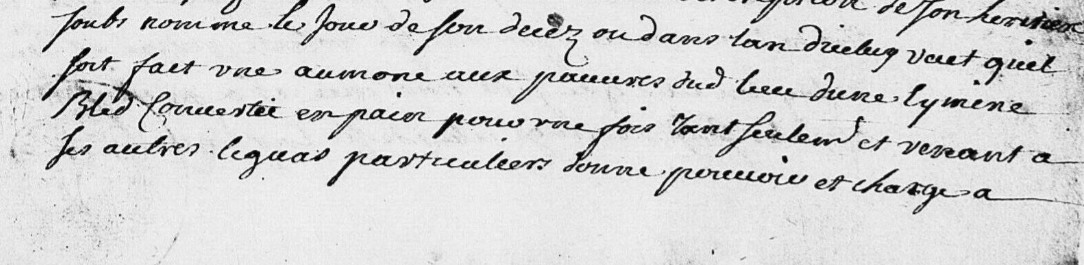 de son heritier
soubs nomme le Jour de son decez ou dans lan dicelluy veut quil
soit fait vne aumone aux pauures dud lieu dune eymine
Bled Conuertie en pain pour vne fois tant seulemt et venant a
ses autres leguas particuliers donne pouuoir et charge a